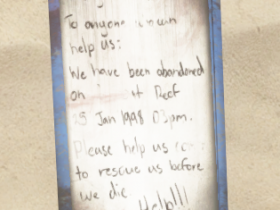 To anyone
help us:
We have been abandoned
on Reef
Jan 1998 03pm.
Please help us
to rescue us before
we die
Help!!!